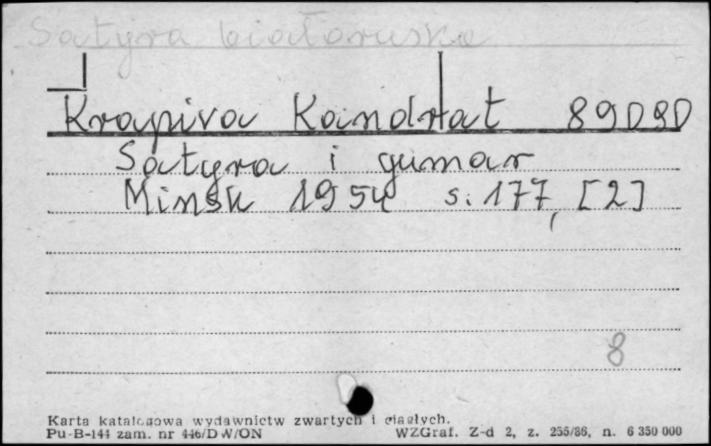 Satyra białoruska
Krapiva Kandrat 89080
Satyra i gumar
Minsk 1954 s. 177, [2]
8
Karta katalogowa wydawnictw zwartych i ciągłych.
Pu-B-144 zam. nr 446/DW/ON WZGraf. Z-d 2, z. 255/86, n. 6 350 000